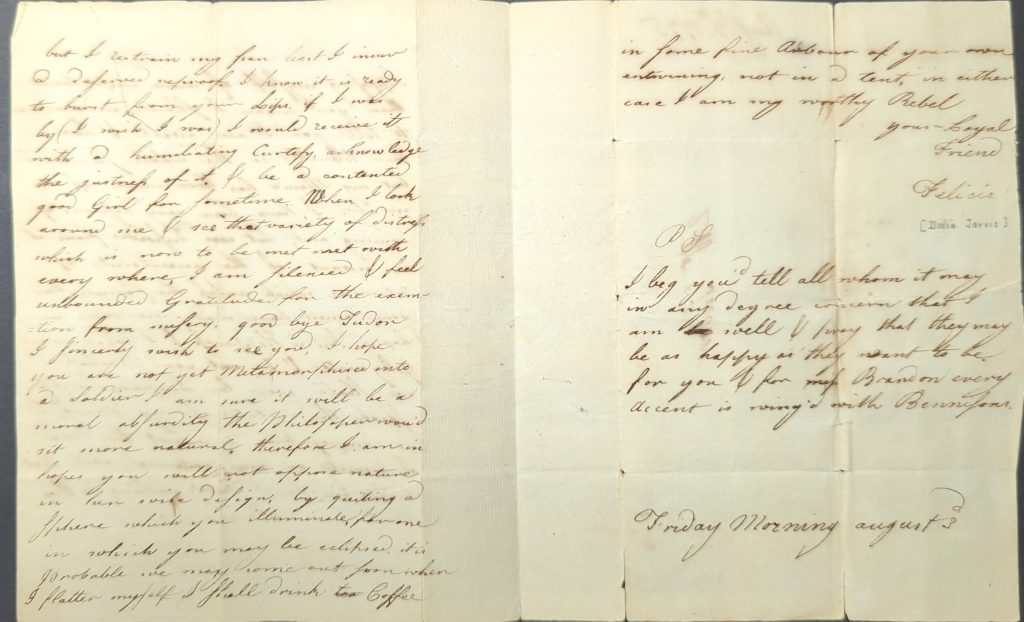 but I restrain my pen least I incur
a deserved reproof, I know it is ready
to burst from your Lips. if I was
by (I wish I was) I would receive it
with a humiliating Curtesy, acknowledge
the justness of it, & be a contented
good Girl for sometime. When I look
around me & see that variety of distress
which is now to be met met with
every where, I am silenced & feel
unbounded Gratitude for the exem-
-tion from misery. good bye Tudor
I sincerly wish to see you, I hope
you are not yet Metamorphised into
a Soldier I am sure it will be a
moral absurdity the Philosopher wou'd
sit more natural, therefore I am in
hopes you will not oppose nature
in her wise design, by quiting a
Sphere which you illuminate, for one
in which you may be eclipsed. it is
probable we may come out soon when
I flatter myself I shall drink tea Coffee
in some fine Arbour of your own
entwining, not in a tent, in either
case I am my worthy Rebel
your Loyal
Friend
Felicis
[Delia Jarvis]
P S
I beg you'd tell all whom it may
in any degree concern that I
am well & pray that they may
be as happy as they want to be.
for you & for miss Brandon every
accent is wing'd with Bennisons.
Friday Morning august 3